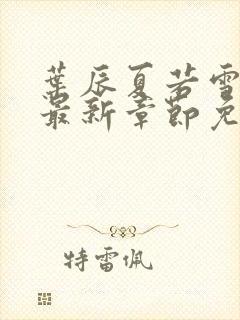 葉辰夏若雪
最新章節免
特雷佩